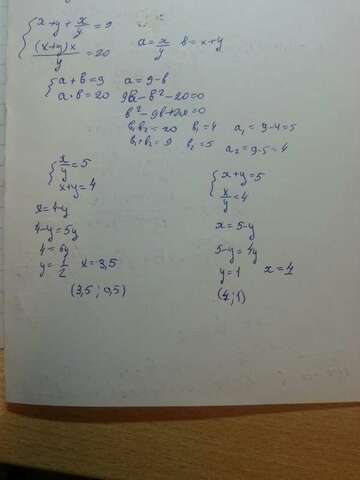 x+y+x/y=9
(x+y)x/y=20 a=x/y b=x+y
a+b=9 a=9-b
a·b=20 9b-b²-20=0
b²-9b+20=0
b₁b₂=20 b₁=4 a₁=9-4=5
b₁+b₂=9 b₂=5 a₂=9-5=4
x/y=5
x+y=4
x=4-y
4-y=5y
4=6y
y=1/2 x=3,5
(3,5;0,5)
x+y=5
x/y=4
x=5-y
5-y=4y
y=1 x=4
(4;1)